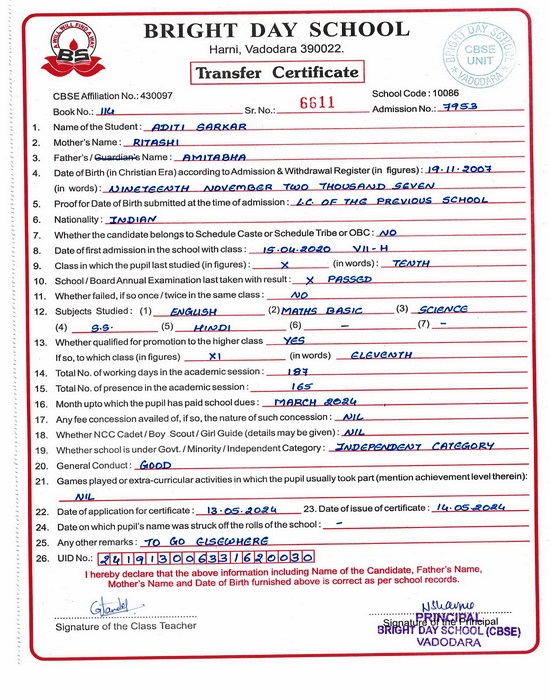 A WILL WILL FIND A WAY
BS
BRIGHT DAY SCHOOL
Harni, Vadodara 390022.
Transfer Certificate
BRIGHT DAY SCHOOL
CBSE
UNIT
VADODARA
CBSE Affiliation No.: 430097 School Code : 10086
Book No.: 114 Sr. No.: 6611 Admission No.: 7953
1. Name of the Student : ADITI SARKAR
2. Mother's Name : RITASHI
3. Father's / Guardian's Name : AMITABHA
4. Date of Birth (in Christian Era) according to Admission & Withdrawal Register (in figures) : 19.11.2007
(in words) : NINETEENTH NOVEMBER TWO THOUSAND SEVEN
5. Proof for Date of Birth submitted at the time of admission : L.C. OF THE PREVIOUS SCHOOL
6. Nationality : INDIAN
7. Whether the candidate belongs to Schedule Caste or Schedule Tribe or OBC : NO
8. Date of first admission in the school with class : 15.04.2020 VII - H
9. Class in which the pupil last studied (in figures) : X (in words) : TENTH
10. School / Board Annual Examination last taken with result : X PASSED
11. Whether failed, if so once / twice in the same class : NO
12. Subjects Studied : (1) ENGLISH (2) MATHS BASIC (3) SCIENCE
(4) S.S. (5) HINDI (6) - (7) -
13. Whether qualified for promotion to the higher class YES
If so, to which class (in figures) XI (in words) ELEVENTH
14. Total No. of working days in the academic session : 187
15. Total No. of presence in the academic session : 165
16. Month upto which the pupil has paid school dues : MARCH 2024
17. Any fee concession availed of, if so, the nature of such concession : NIL
18. Whether NCC Cadet / Boy Scout / Girl Guide (details may be given) : NIL
19. Whether school is under Govt. / Minority / Independent Category : INDEPENDENT CATEGORY
20. General Conduct : GOOD
21. Games played or extra-curricular activities in which the pupil usually took part (mention achievement level therein):
NIL
22. Date of application for certificate : 13.05.2024 23. Date of issue of certificate : 14.05.2024
24. Date on which pupil's name was struck off the rolls of the school : -
25. Any other remarks : TO GO ELSEWHERE
26. UID No.: 241913006331620030
I hereby declare that the above information including Name of the Candidate, Father's Name,
Mother's Name and Date of Birth furnished above is correct as per school records.
Signature of the Class Teacher Signature of the Principal
PRINCIPAL
BRIGHT DAY SCHOOL (CBSE)
VADODARA